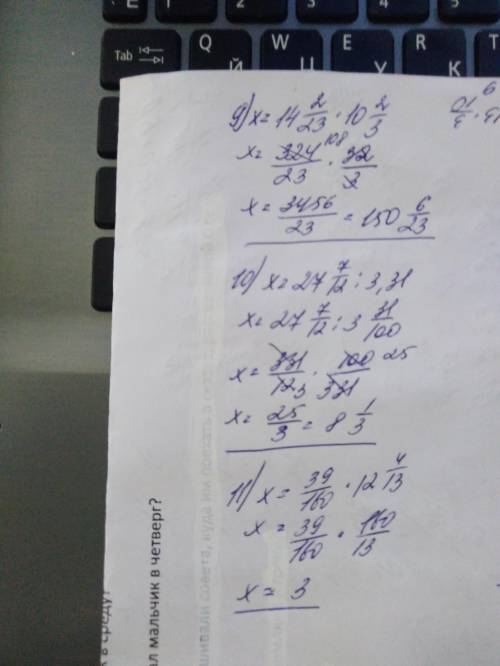 Tab Q W E R
Й Ц У К
9) x = 14 2/23 · 10 2/3
x = 324/23 108 · 32/3
x = 3456/23 = 150 6/23
10) x = 27 7/12 : 3,31
x = 27 7/12 : 3 31/100
x = 331/12 3 · 100/331 25
x = 25/3 = 8 1/3
11) x = 39/160 · 12 4/13
x = 39/160 · 160/13
x = 3
ал мальчик в четверг?
к в среду?